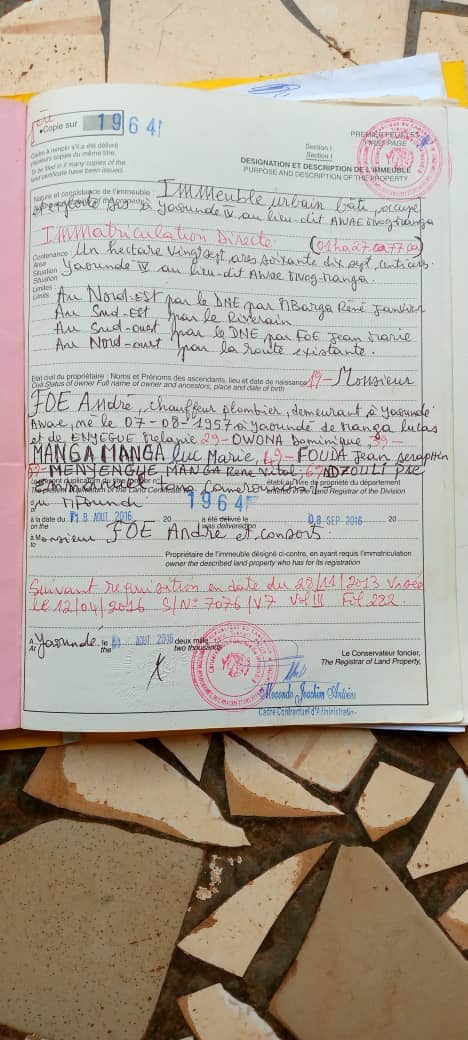 Copie sur 1964
PREMIER FEUILLET
FIRST PAGE
Section I
Section I
DESIGNATION ET DESCRIPTION DE L'IMMEUBLE
PURPOSE AND DESCRIPTION OF THE PROPERTY
Cadre à remplir s'il a été délivré
plusieurs copies du même titre.
To be filled in if many copies of the
land certificate have been issued.
Nature et consistance de l'immeuble Immeuble urbain bâti, occupé
sis à Yaoundé IV au lieu-dit AWAE
Immatriculation Directe (01ha27a77ca)
Contenance Un hectare vingt sept ares soixante dix sept centiares
Area
Situation Yaoundé IV au lieu-dit Awae
Situation
Limites :
Limits
Au Nord-Est par le DNE par MBarga René
Au Sud-Est par le Riverain
Au Sud-ouest par le DNE par FOE Jean Marie
Au Nord-ouest par la route existante.
Etat civil du propriétaire : Noms et Prénoms des ascendants, lieu et date de naissance 1º- Monsieur
Civil Status of owner Full name of owner and ancestors, place and date of birth
FOE André, chauffeur plombier, demeurant à Yaoundé
Awae, né le 07-08-1957 à Yaoundé de Manga Lucas
et de ENYEGUE Melanie 2º- OWONA Dominique 3º-
MANGA MANGA Luc Marie, 4º- FOUDA Jean Seraphin
5º- MENYENGUE MANGA Rene Vital, 6º NDZOULI
établi au livre de propriété du département
Land Registrar of the Division
du Mfoundi 1964
à la date du 18 AOUT 2016 20 a été délivré le 08 SEP. 2016 20
on the was delivered on
à Monsieur FOE André et consors
to
Propriétaire de l'immeuble désigné ci-contre, en ayant requis l'immatriculation
owner the described land property who has for its registration
Suivant requisition en date du 29/11/2013 Visée
le 12/04/2016 S/Nº 7076/V7 Vol III Fol 282
A Yaoundé, le AOUT 2016 deux mille
At the two thousand
Le Conservateur foncier,
The Registrar of Land Property,
Joachim
Cadre Contractuel d'Administration